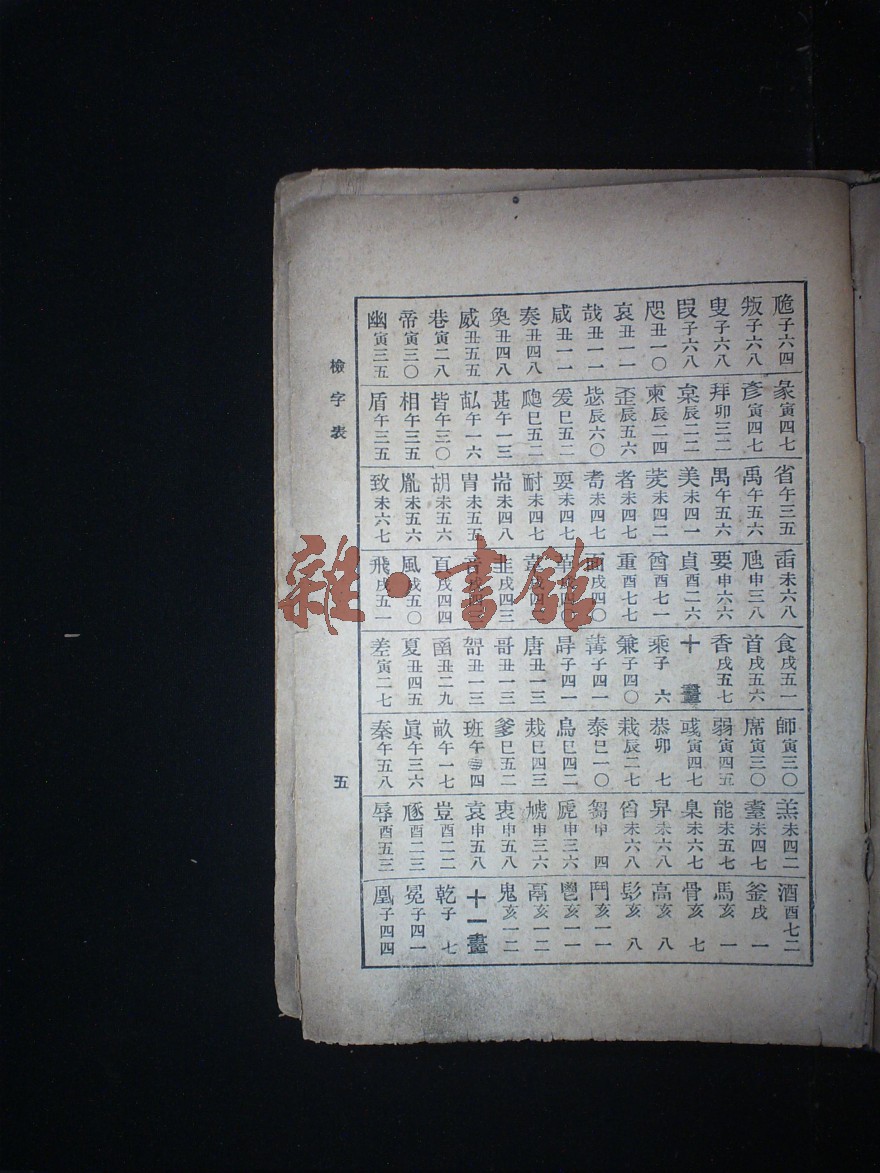 卼子六四
叛子六八
叟子六八
叚子六八
咫丑一〇
哀丑一一
哉丑一一
咸丑一一
奏丑四八
奐丑四八
威丑五五
巷寅二八
帝寅三〇
幽寅三五
彖寅四七
彥寅四七
拜卯三二
辰二二
柬辰二四
歪辰五六
毖辰六〇
爰巳五二
巳五二
甚午一三
午一六
皆午三〇
相午三五
盾午三五
省午三五
禹午五六
禺午五六
美未四一
羑未四二
者未四七
耇未四七
耎未四七
耐未四七
耑未四八
胄未五五
胡未五六
胤未五六
致未六七
臿未六八
虺申三八
要申六六
貞酉二六
酋酉七一
重酉七七
面戌四〇
革戌四〇
韋戌四二
韭戌四三
音戌四三
頁戌四四
風戌五〇
飛戌五一
食戌五一
首戌五六
香戌五七
十畫
乘子六
兼子四〇
冓子四一
冔子四一
唐丑一三
哥丑一三
哿丑一三
圅丑二九
夏丑四五
差寅二七
師寅三〇
席寅三〇
弱寅四五
彧寅四七
恭卯七
栽辰二七
泰巳一〇
烏巳四二
烖巳四三
爹巳五二
班午四
畝午一七
眞午三六
秦午五八
羔未四二
耊未四七
能未五七
臬未六七
舁未六八
舀未六八
芻申四
虒申三六
虓申三六
衷申五八
袁申五八
豈酉二二
豗酉二三
辱酉五三
酒酉七二
釜戌一
馬亥一
骨亥七
高亥八
髟亥八
鬥亥一一
鬯亥一一
鬲亥一二
鬼亥一二
十一畫
乾子七
冕子四一
凰子四四
檢字表
五
雜·書館